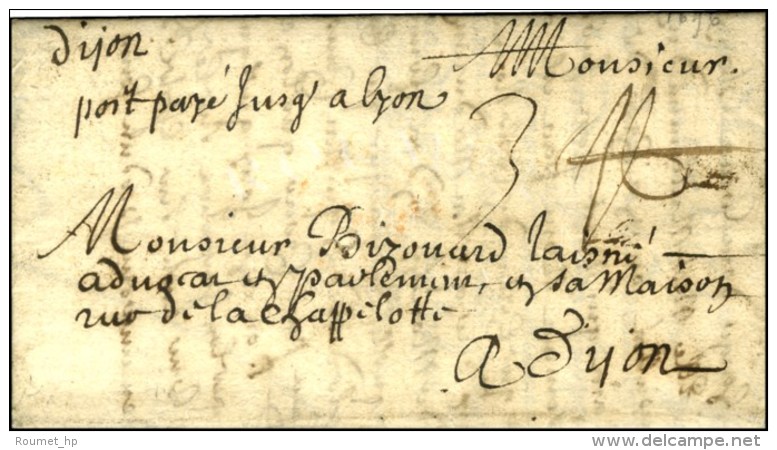 1696
dijon
Monsieur.
port payé Jusq' a lyon
3
Monsieur Bizouard laisné
aduocat en parlement, en sa Maison
rue de la Chappelotte
A dijon
Roumet_hp
www.delcampe.net